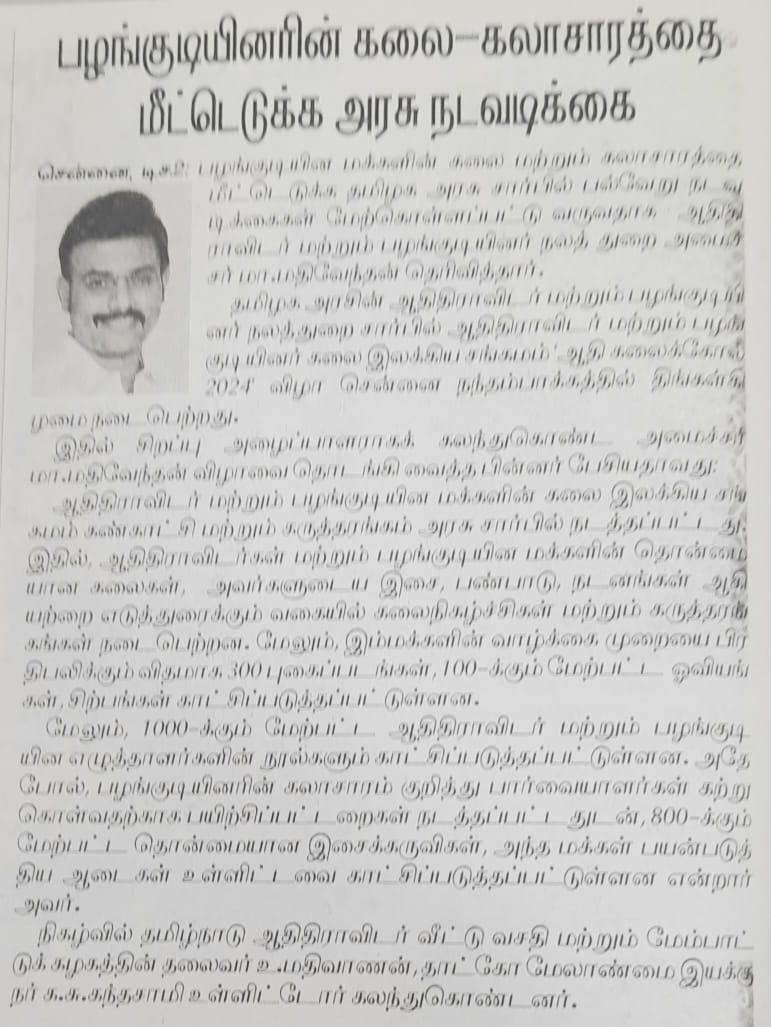 பழங்குடியினரின் கலை–கலாசாரத்தை
மீட்டெடுக்க அரசு நடவடிக்கை
சென்னை, டிச.2: பழங்குடியின மக்களின் கலை மற்றும் கலாசாரத்தை
மீட்டெடுக்க தமிழக அரசு சார்பில் பல்வேறு நடவ
டிக்கைகள் மேற்கொள்ளப்பட்டு வருவதாக ஆதிதி
ராவிடர் மற்றும் பழங்குடியினர் நலத் துறை அமைச்
சர் மா.மதிவேந்தன் தெரிவித்தார்.
தமிழக அரசின் ஆதிதிராவிடர் மற்றும் பழங்குடியி
னர் நலத்துறை சார்பில் ஆதிதிராவிடர் மற்றும் பழங்
குடியினர் கலை இலக்கிய சங்கமம் 'ஆதி கலைக்கோல்
2024' விழா சென்னை நந்தம்பாக்கத்தில் திங்கள்கி
ழமை நடைபெற்றது.
இதில் சிறப்பு அழைப்பாளராகக் கலந்துகொண்ட அமைச்சர்
மா.மதிவேந்தன் விழாவை தொடங்கி வைத்த பின்னர் பேசியதாவது:
ஆதிதிராவிடர் மற்றும் பழங்குடியின மக்களின் கலை இலக்கிய சங்
கமம் கண்காட்சி மற்றும் கருத்தரங்கம் அரசு சார்பில் நடத்தப்பட்டது.
இதில், ஆதிதிராவிடர்கள் மற்றும் பழங்குடியின மக்களின் தொன்மை
யான கலைகள், அவர்களுடைய இசை, பண்பாடு, நடனங்கள் ஆகி
யற்றை எடுத்துரைக்கும் வகையில் கலைநிகழ்ச்சிகள் மற்றும் கருத்தரங்
கங்கள் நடைபெற்றன. மேலும், இம்மக்களின் வாழ்க்கை முறையை பிர
திபலிக்கும் விதமாக 300 புகைப்படங்கள், 100-க்கும் மேற்பட்ட ஓவியங்
கள், சிற்பங்கள் காட்சிப்படுத்தப்பட்டுள்ளன.
மேலும், 1000-க்கும் மேற்பட்ட ஆதிதிராவிடர் மற்றும் பழங்குடி
யின எழுத்தாளர்களின் நூல்களும் காட்சிப்படுத்தப்பட்டுள்ளன. அதே
போல், பழங்குடியினரின் கலாசாரம் குறித்து பார்வையாளர்கள் கற்று
கொள்வதற்காக பயிற்சிப்பட்டறைகள் நடத்தப்பட்டதுடன், 800-க்கும்
மேற்பட்ட தொன்மையான இசைக்கருவிகள், அந்த மக்கள் பயன்படுத்
திய ஆடைகள் உள்ளிட்டவை காட்சிப்படுத்தப்பட்டுள்ளன என்றார்
அவர்.
நிகழ்வில் தமிழ்நாடு ஆதிதிராவிடர் வீட்டு வசதி மற்றும் மேம்பாட்
டுக் கழகத்தின் தலைவர் உ.மதிவாணன், தாட்கோ மேலாண்மை இயக்கு
நர் க.சு.கந்தசாமி உள்ளிட்டோர் கலந்துகொண்டனர்.